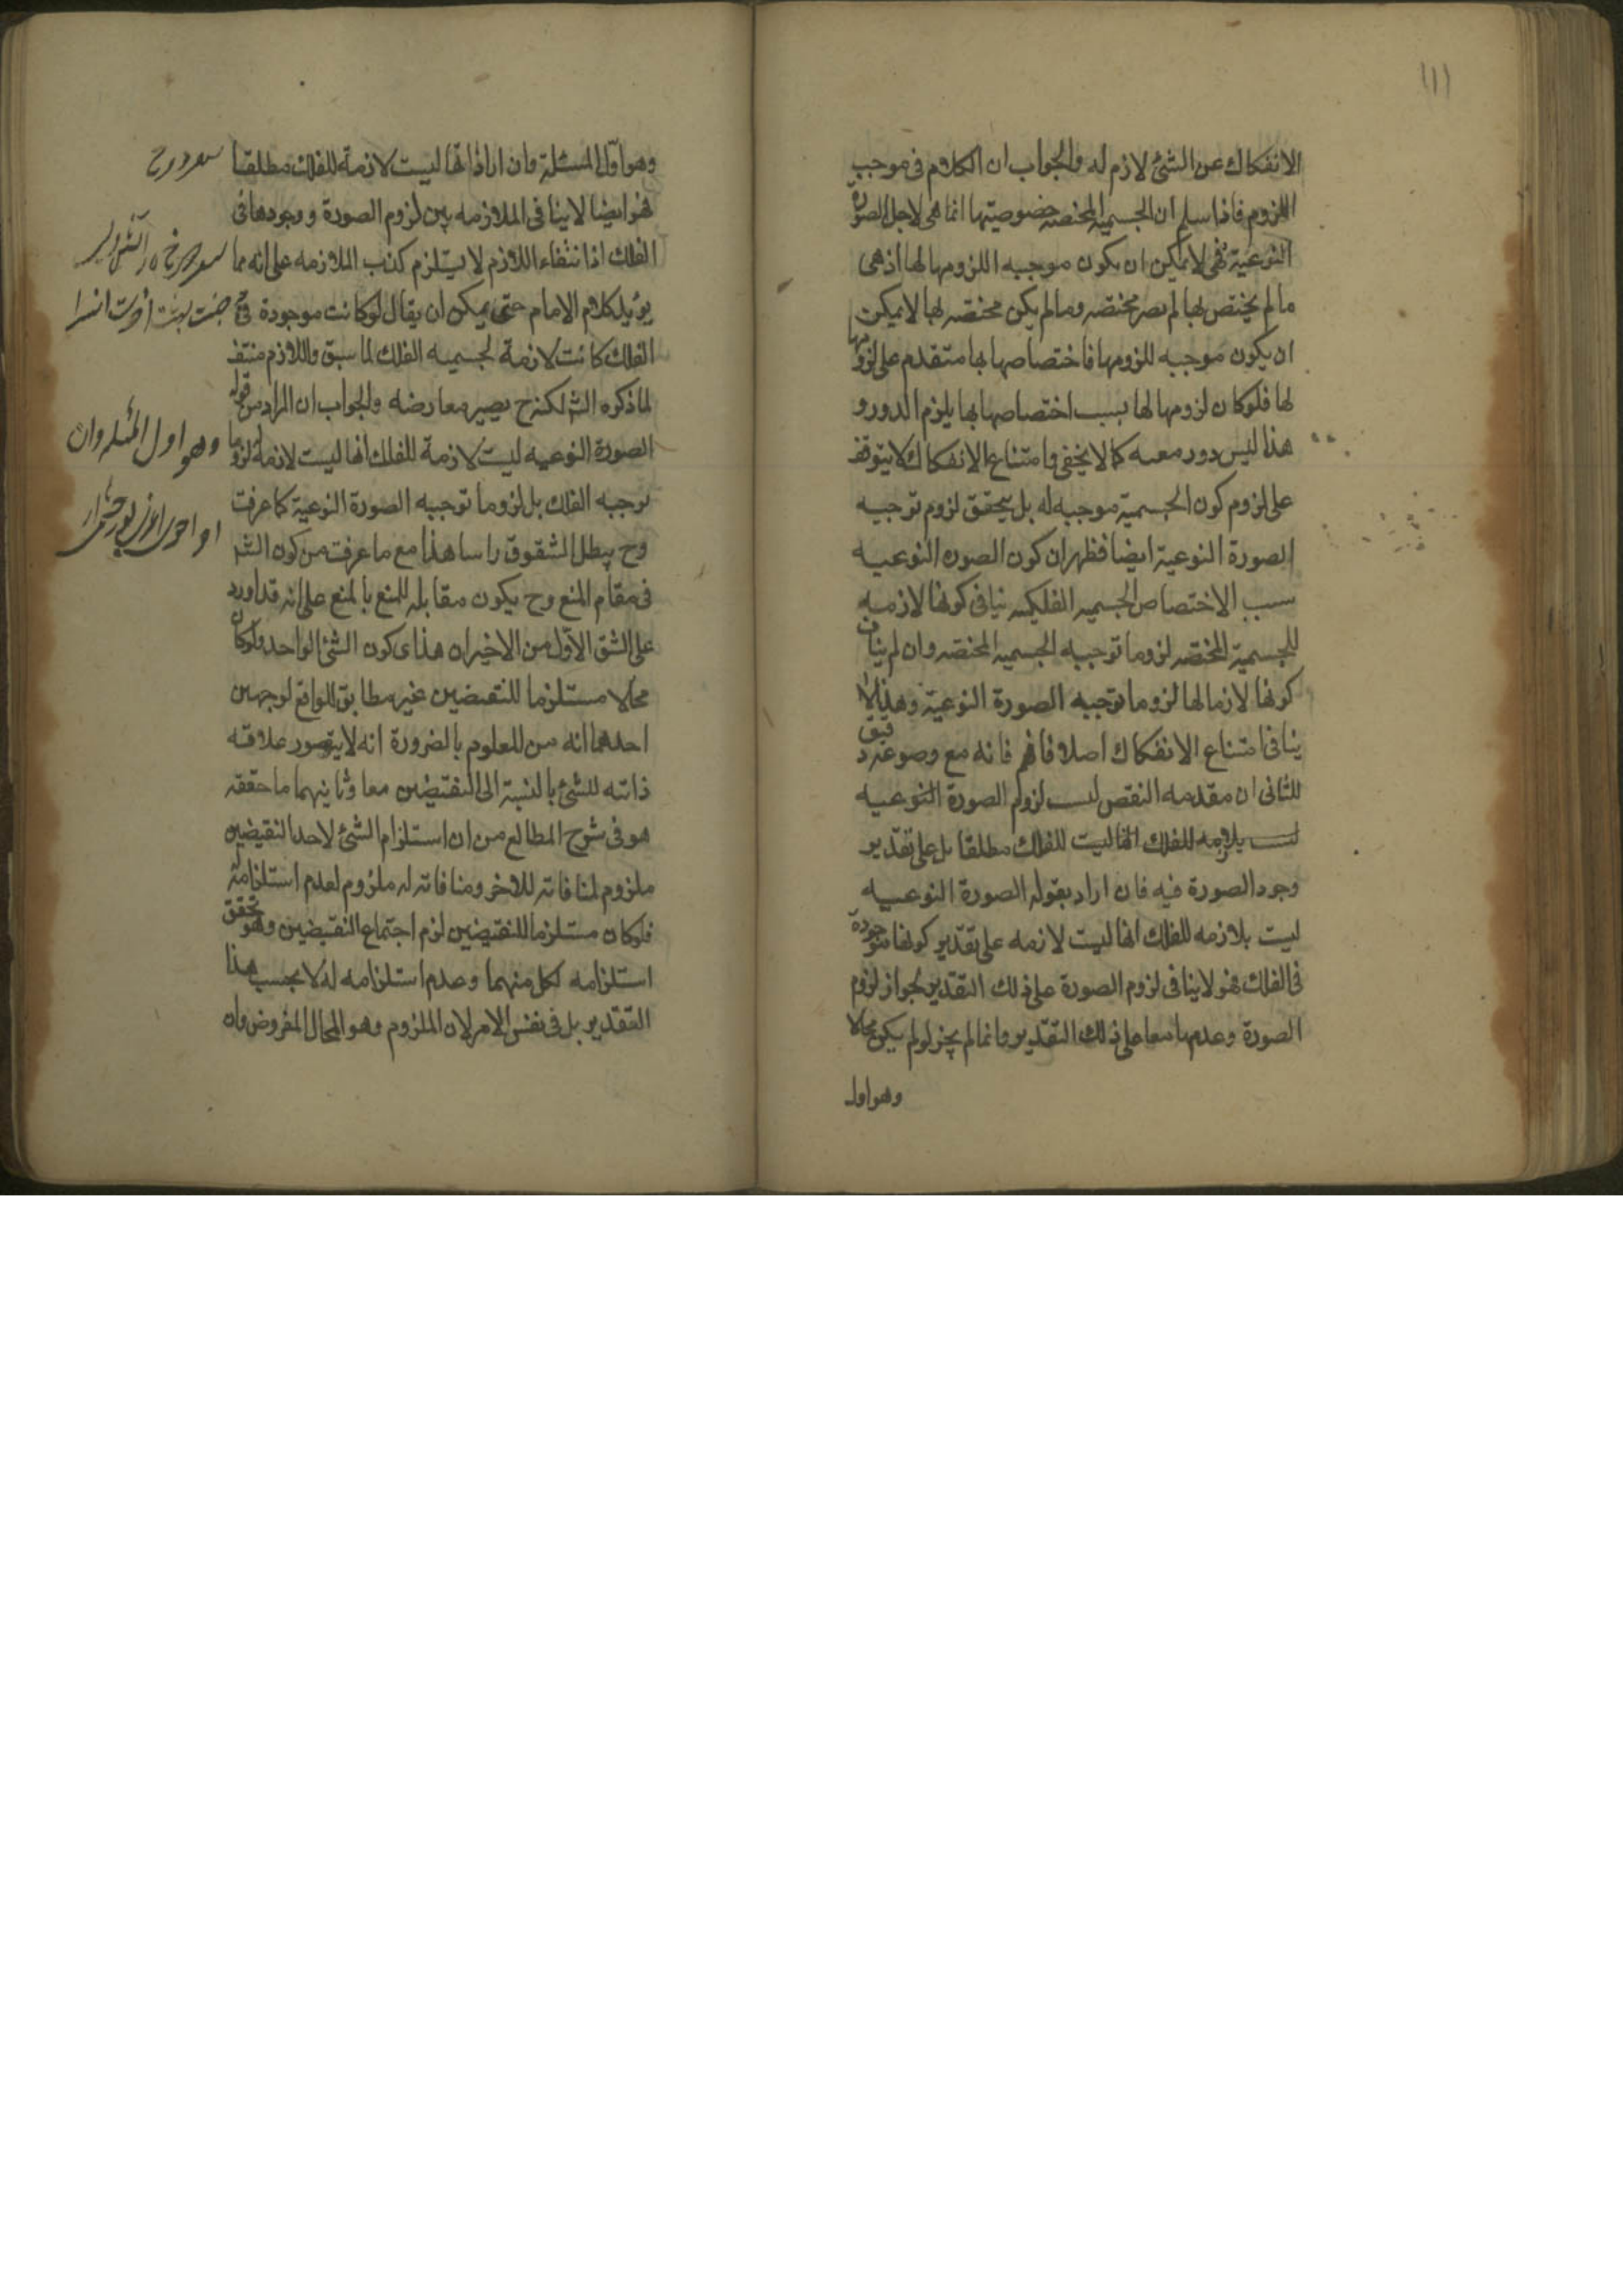 ١١١
الانفكاك عن الشئ لازم له والجواب ان الكلام فى موجب
اللزوم فاذا سلم ان الجسمية المختصة خصوصيتها انما هى لاجل الصورة
النوعية فهى لا يمكن ان يكون موجبه اللزومها لها اذ هى
ما لم يختص لها لم يصر مختصه وما لم يكن مختصه لها لا يمكن
ان يكون موجبه للزومها فاختصاصها بها متقدم على لزومها
لها فلو كان لزومها لها بسبب اختصاصها بها يلزم الدور و
هذا ليس دور معيه كما لا يخفى وامتناع الانفكاك لا يتوقف
على لزوم كون الجسمية موجبه له بل يتحقق لزوم توجبه
الصورة النوعية ايضا فظهر ان كون الصوره النوعيه
سبب الاختصاص الجسميه الفلكيه ينافى كونها لازمه
للجسمية المختصه لزوما توجبه الجسميه المختصه وان لم يناف
كونها لازما لها لزوما توجبه الصورة النوعية وهذا لا
ينافى امتناع الانفكاك اصلا فافهم فانه مع وضوعه دقيق
الثانى ان مقدمه النقص ليست لزوم الصورة النوعيه
ليست بلازمه للفلك انها ليست للفلك مطلقا بل على تقدير
وجود الصورة فيه فان اراد بقوله الصورة النوعيه
ليست بلازمه للفلك انها ليست لازمه على تقدير كونها موجودة
فى الفلك فهو لا ينافى لزوم الصورة على ذلك التقدير لجواز لزوم
الصورة وعدمها معا على ذلك التقدير وانما لم يجز لو لم يكن محالا
وهو اول
وهو اول المسئلة وان اراد انها ليست لازمة للفلك مطلقا
فهو ايضا لا ينافى الملازمه بين لزوم الصورة ووجودها فى
الفلك اذ انتفاء اللازم لا يستلزم كذب الملازمه على انه مما
يؤيد كلام الامام حتى يمكن ان يقال لو كانت موجودة فى
الفلك كانت لازمة لجسميه الفلك لما سبق واللازم منتف
لما ذكره الش لكن ح يصير معارضه والجواب ان المراد من قوله
الصورة النوعيه ليست لازمة للفلك انها ليست لازمه له لزوما
توجبه الفلك بل لزوما توجبه الصورة النوعية كما عرفت
وح يبطل الشقوق راسا هذا مع ما عرفت من كون الش
فى مقام المنع وح يكون مقابله للمنع بالمنع على انه قد اورد
على الشق الاول من الاخيران هذا كون الشئ الواحد ولو كان
محالا مستلزما للنقيضين غير مطابق للواقع لوجهين
احدهما انه من المعلوم بالضرورة انه لا يتصور علاقه
ذاتيه للشئ بالنسبة الى النقيضين معا وثانيهما ما حققه
هو فى شرح المطالع من ان استلزام الشئ لاحد النقيضين
ملزوم لمنافاته للاخر ومنافاته له ملزوم لعدم استلزامه له
فلو كان مستلزما للنقيضين لزم اجتماع النقيضين وهو تحقق
استلزامه لكل منهما وعدم استلزامه له لا بحسب هذا
التقدير بل فى نفس الامر لان الملزوم وهو المحال المفروض وان
وهو اول المسئله وان